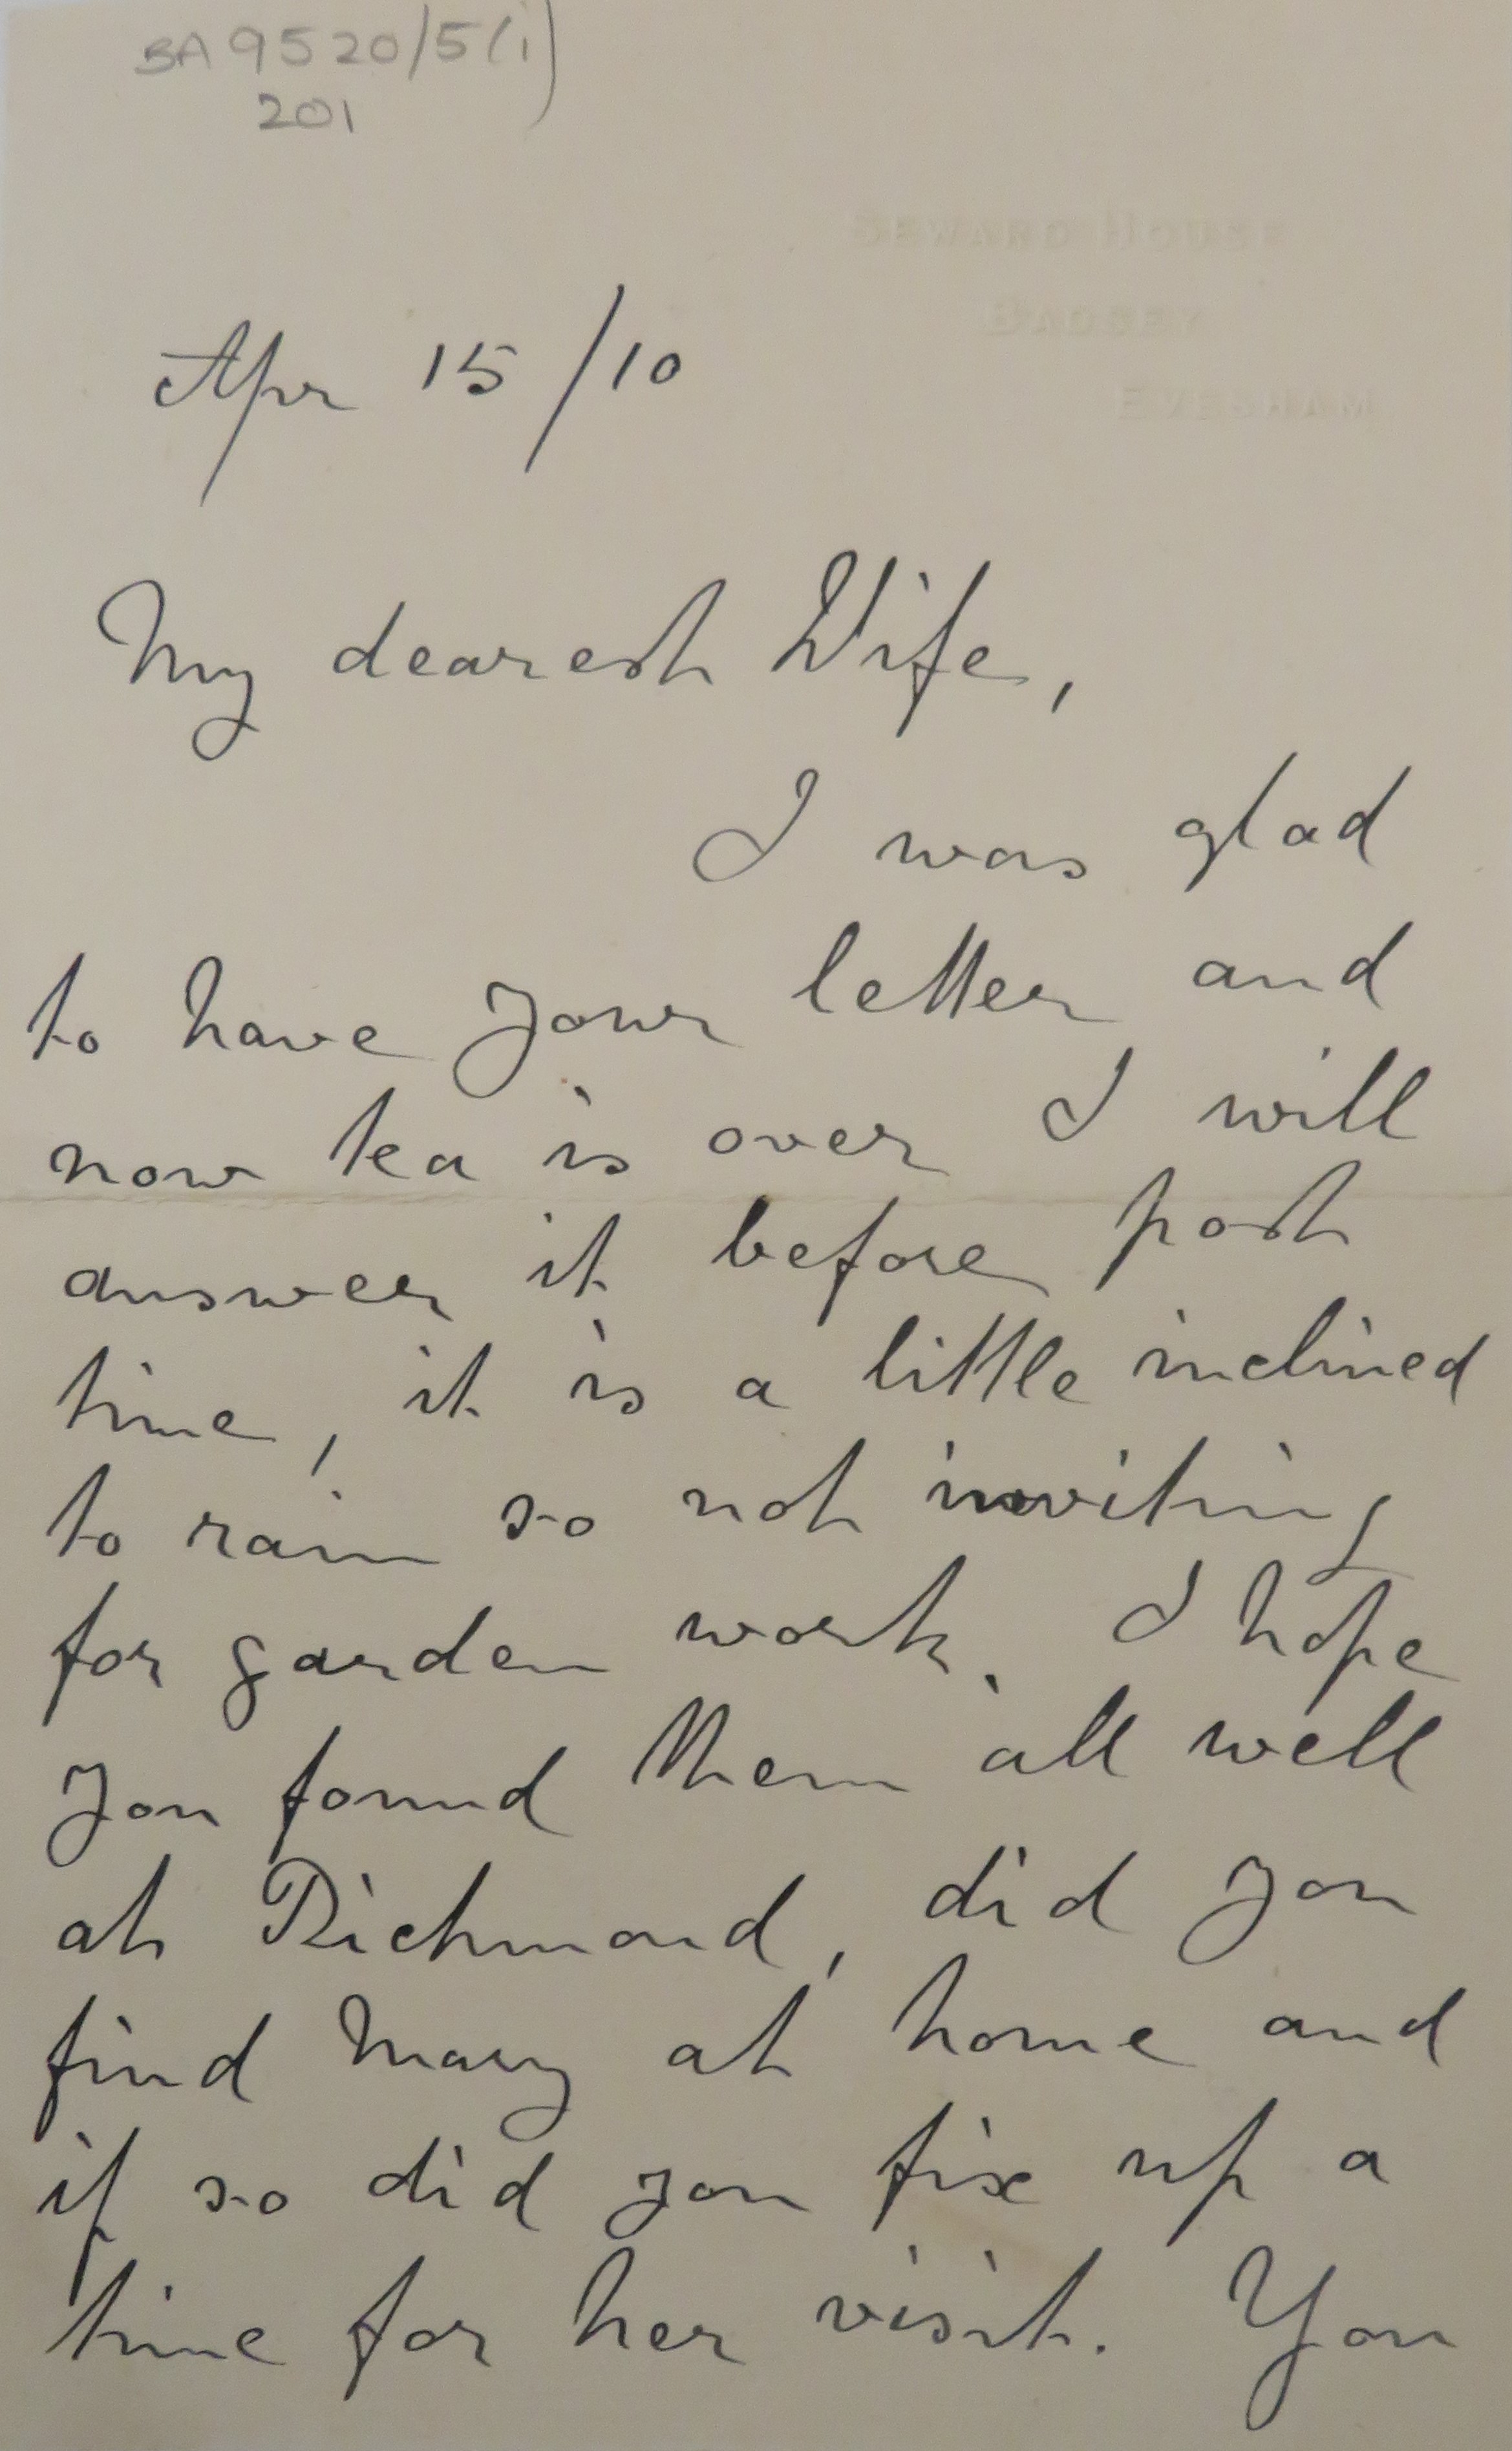 BA 9520/5(i)
201
SEWARD HOUSE
BADSEY
EVESHAM
Apr 15/10
My dearest Wife,
I was glad
to have your letter and
now tea is over I will
answer it before post
time, it is a little inclined
to rain so not inviting
for garden work. I hope
you found them all well
at Richmond, did you
find Mary at home and
if so did you fix up a
time for her visit. You